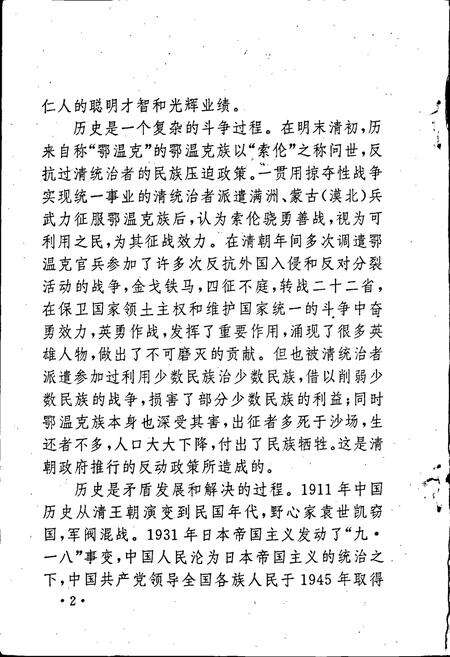 仁人的聪明才智和光辉业绩。
历史是一个复杂的斗争过程。在明末清初，历
来自称“鄂温克”的鄂温克族以“索伦”之称问世，反
抗过清统治者的民族压迫政策。一贯用掠夺性战争
实现统一事业的清统治者派遣满洲、蒙古(漠北)兵
武力征服鄂温克族后，认为索伦骁勇善战，视为可
利用之民，为其征战效力。在清朝年间多次调遣鄂
温克官兵参加了许多次反抗外国入侵和反对分裂
活动的战争，金戈铁马，四征不庭，转战二十二省，
在保卫国家领土主权和维护国家统一的斗争中奋
勇效力，英勇作战，发挥了重要作用，涌现了很多英
雄人物，做出了不可磨灭的贡献。但也被清统治者
派遣参加过利用少数民族治少数民族，借以削弱少
数民族的战争，损害了部分少数民族的利益；同时
鄂温克族本身也深受其害，出征者多死于沙场，生
还者不多，人口大大下降，付出了民族牺牲。这是清
朝政府推行的反动政策所造成的。
历史是矛盾发展和解决的过程。1911年中国
历史从清王朝演变到民国年代，野心家袁世凯窃
国，军阀混战。1931年日本帝国主义发动了“九·
一八”事变，中国人民沦为日本帝国主义的统治之
下，中国共产党领导全国各族人民于1945年取得
·2·